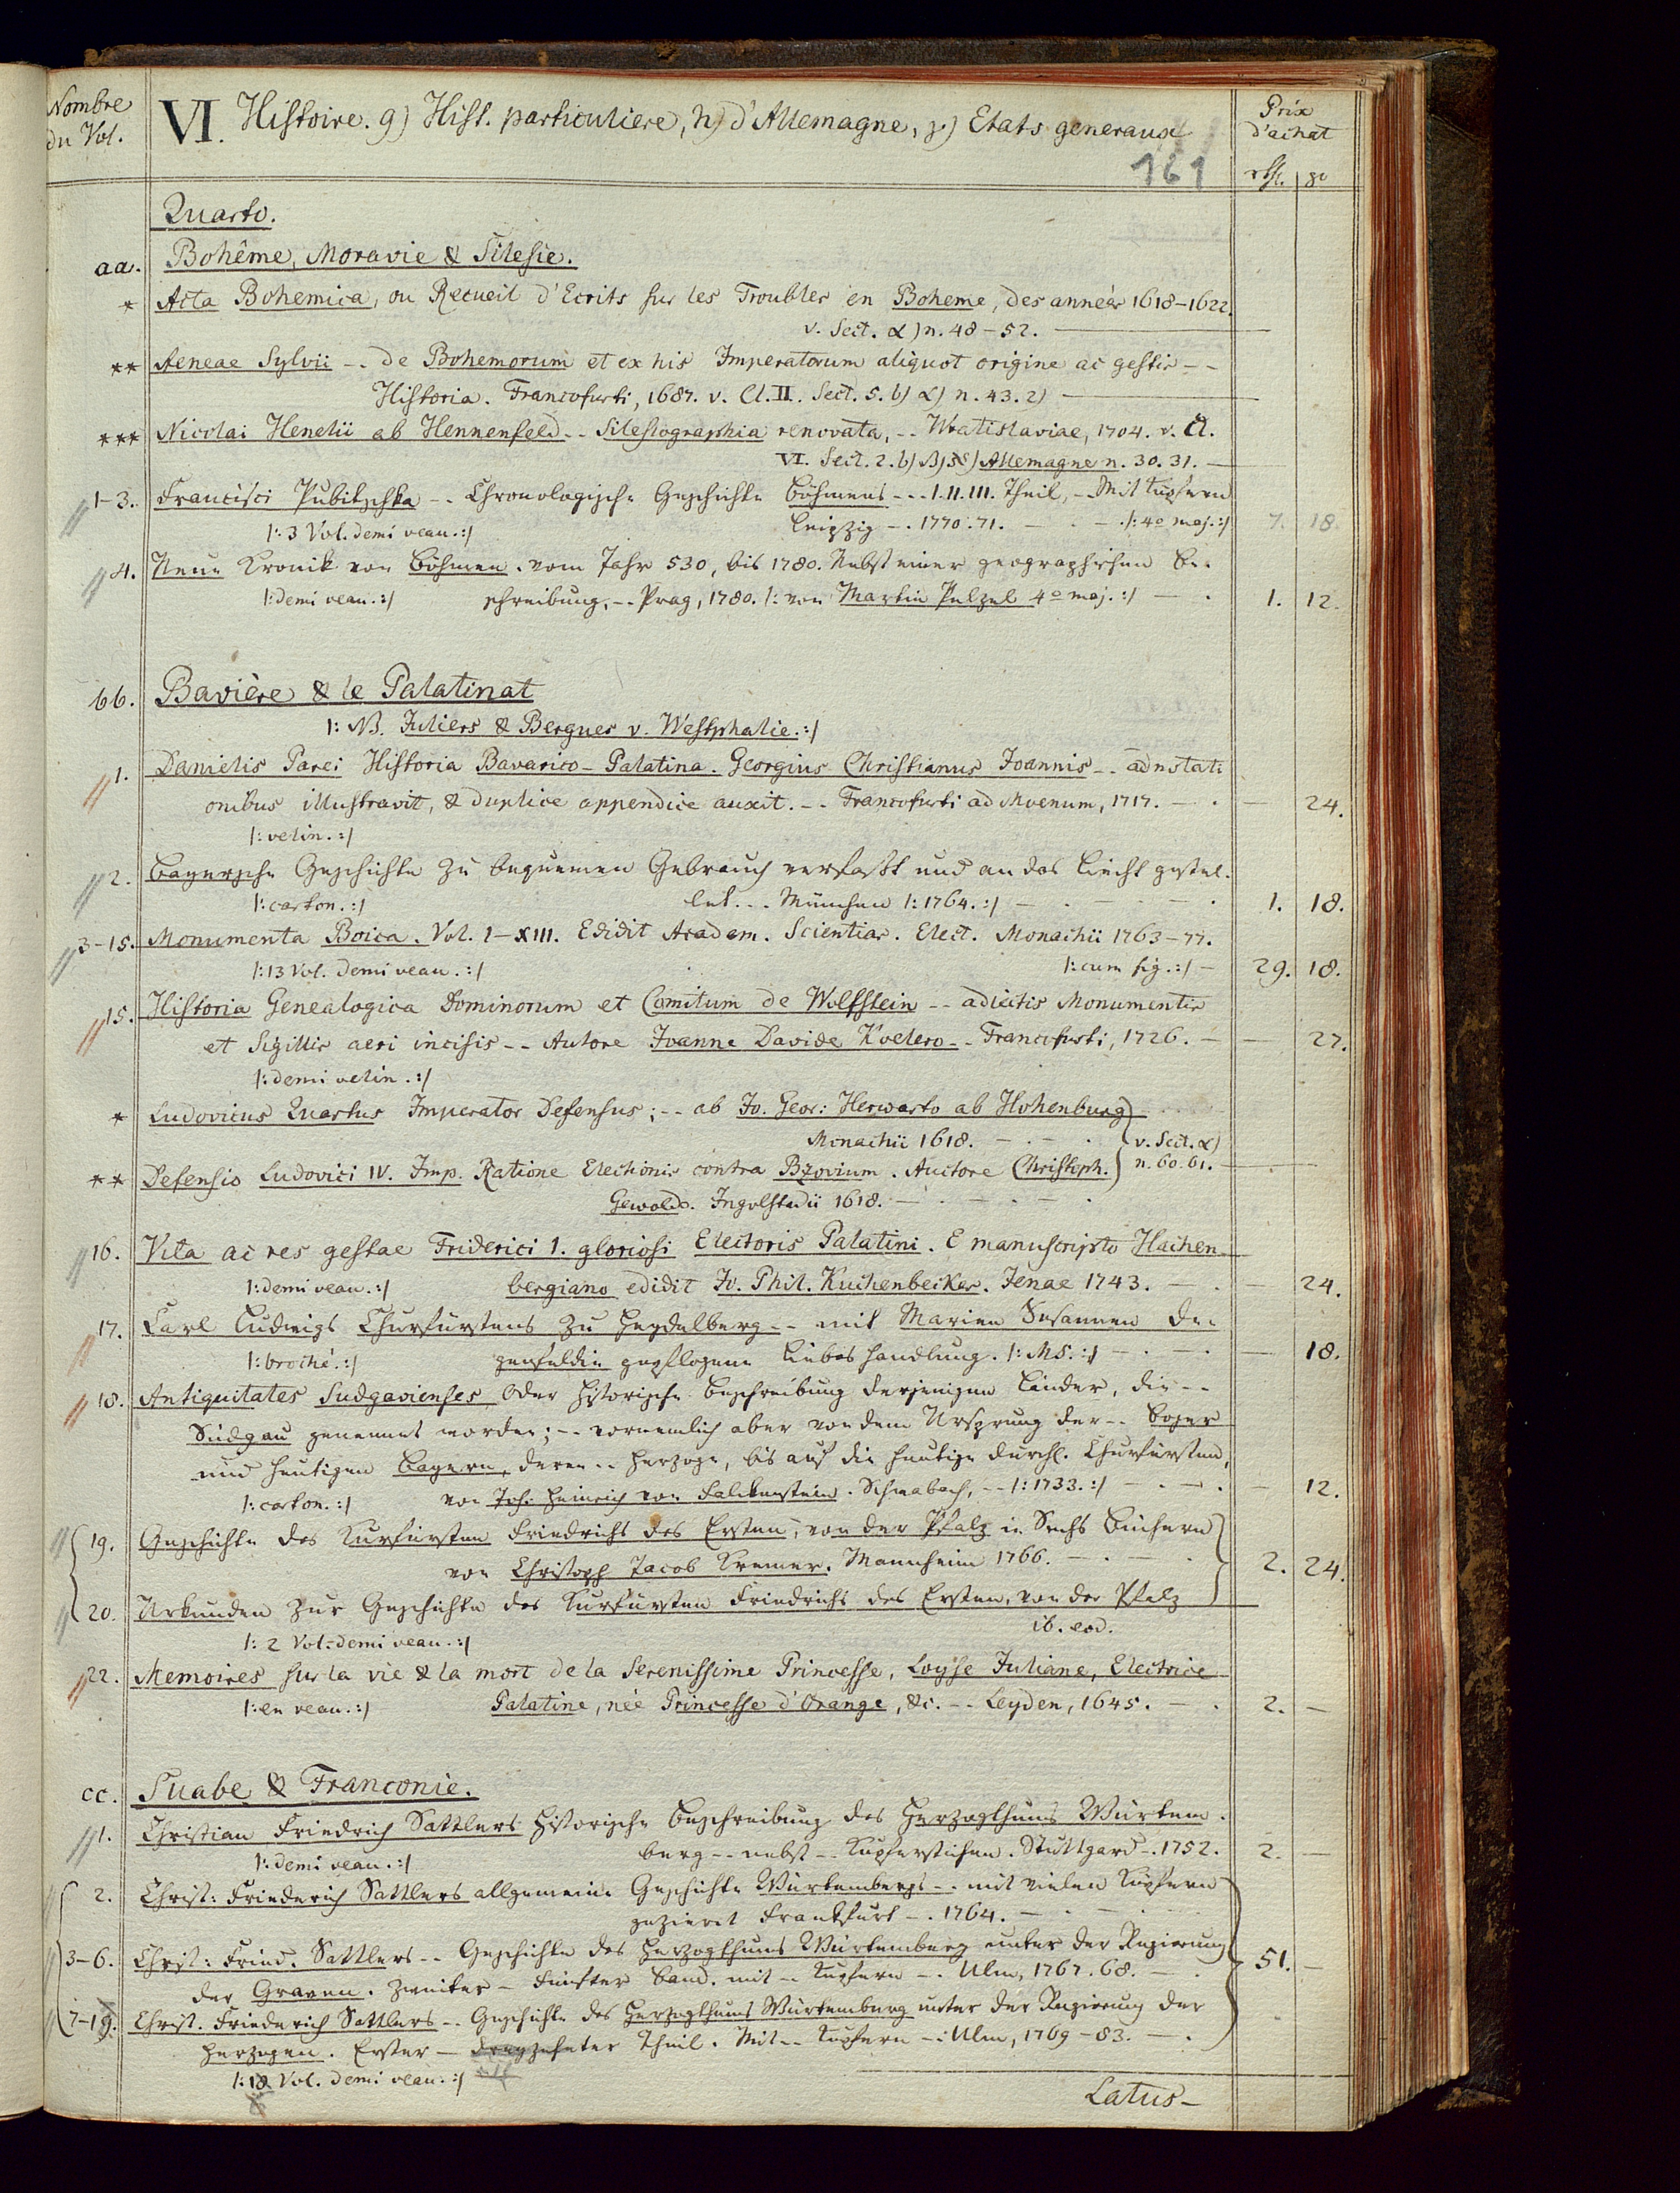 Nombre du Vol.
VI. Histoire. g) Hist. particuliere, h) d'Allemagne, z) Etats generaux
Prix d'achat
161
rth. gr
Quarto.
aa. Bohême, Moravie & Silesie.
* Acta Bohemica, ou Recueil d'Ecrits sur les Troubles en Boheme, des années 1618–1622.
v. Sect. α) n. 48–52.
** Aeneae Sylvii -- de Bohemorum et ex his Imperatorum aliquot origine ac gestis --
Historia. Francofurti, 1687. v. Cl. II. Sect. 5. b) α) n. 43. 2)
*** Nicolai Henelii ab Hennenfeld -- Silesiographia renovata, -- Wratislaviae, 1704. v. Cl.
VI. Sect. 2. b) Allemagne n. 30. 31.
1-3. Francisci Pubitschka -- Chronologische Geschichte Böhmens --- I. II. III. Theil, - Mit Kupfern
|: 3 Vol. demi veau. :| Leipzig -. 1770. 71. |: 4o maj. :| 7. 18.
4. Neue Kronik von Böhmen. vom Jahr 530, bis 1780. Nebst einer geographischen Be-
|: demi veau. :| schreibung, -- Prag, 1780. |: von Martin Pelzel 4o maj. :| 1. 12.
bb. Bavière & le Palatinat
|: NB. Juliers & Bergues v. Westphalie. :|
1. Danielis Parei Historia Bavarico-Palatina. Georgius Christianus Joannis -- adnotati
onibus illustravit, & duplice appendice auxit. -- Francofurti ad Moenum, 1717. — 24.
|: velin. :|
2. Bayersche Geschichte zu bequemen Gebrauch verfasst und an das Liecht gestel-
|: carton. :| let. -- München |: 1764. :| 1. 18.
3-15. Monumenta Boica. Vol. I–XIII. Edidit Academ. Scientiar. Elect. Monachii 1763–77.
|: 13 Vol. demi veau. :| |: cum fig. :| 29. 18.
15. Historia Genealogica Dominorum et Comitum de Wolfstein -- adiectis Monumentis
et Sigillis aeri incisis -- Autore Joanne Davide Koelero -- Francofurti, 1726. — 27.
|: demi velin. :|
* Ludovicus Quartus Imperator Defensus; -- ab Jo. Geor: Herwarto ab Hohenburg
Monachii 1618. v. Sect. α)
** Defensio Ludovici IV. Imp. Ratione Electionis contra Bzovium. Auctore Christoph. n. 60. 61.
Gewold. Ingolstadii 1618.
16. Vita ac res gestae Friderici I. gloriosi Electoris Palatini. E manuscripto Hachen
|: demi veau. :| bergiano edidit Jo. Phil. Kuchenbecker. Jenae 1743. — 24.
17. Carl Ludwigs Churfürstens zu Heydelberg -- mit Marien Susannen De-
|: broché. :| genfeldin gepflogene Liebes Handlung. |: MS. :| — 18.
18. Antiquitates Sudgavienses Oder Historische Beschreibung derjenigen Länder, die --
Südgau genennet worden; -- vornemlich aber von dem Ursprung der -- Bojer
und heutigen Bayern, deren -- Herzoge, bis auf die heutige Durchl. Churfürsten,
|: carton. :| von Joh. Heinrich von Falckenstein. Schwabach, -- |: 1733. :| — 12.
19. Geschichte des Kurfürsten Friedrichs des Ersten, von der Pfalz in Sechs Büchern
von Christoph Jacob Kremer. Mannheim 1766. 2. 24.
20. Urkunden zur Geschichte des Kurfürsten Friedrichs des Ersten, von der Pfalz
|: 2 Vol: demi veau. :| ib. eod.
22. Memoires sur la vie & la mort de la Serenissime Princesse, Loyse Juliane, Electrice
|: en veau. :| Palatine, née Princesse d'Orange, &c. -- Leyden, 1645. 2. —
cc. Suabe & Franconie.
1. Christian Friedrich Sattlers Historische Beschreibung des Herzogthums Würtem-
|: demi veau. :| berg -- nebst -- Kupferstichen. Stuttgard -. 1752. 2. —
2. Christ: Friederich Sattlers allgemeine Geschichte Würtembergs -- mit vielen Kupfern
gezieret Frankfurt -. 1764.
3-6. Christ: Fried. Sattlers -- Geschichte des Herzogthums Würtemberg unter der Regierung 51. —
der Graven. Zweiter - Fünfter Band. mit -- Kupfern -. Ulm, 1767. 68.
7-19. Christ. Friederich Sattlers -- Geschichte des Herzogthums Würtemberg unter der Regierung der
Herzogen. Erster — dreyzehnter Theil. Mit -- Kupfern -: Ulm, 1769–83.
|: 18 Vol. demi veau. :|
Latus -